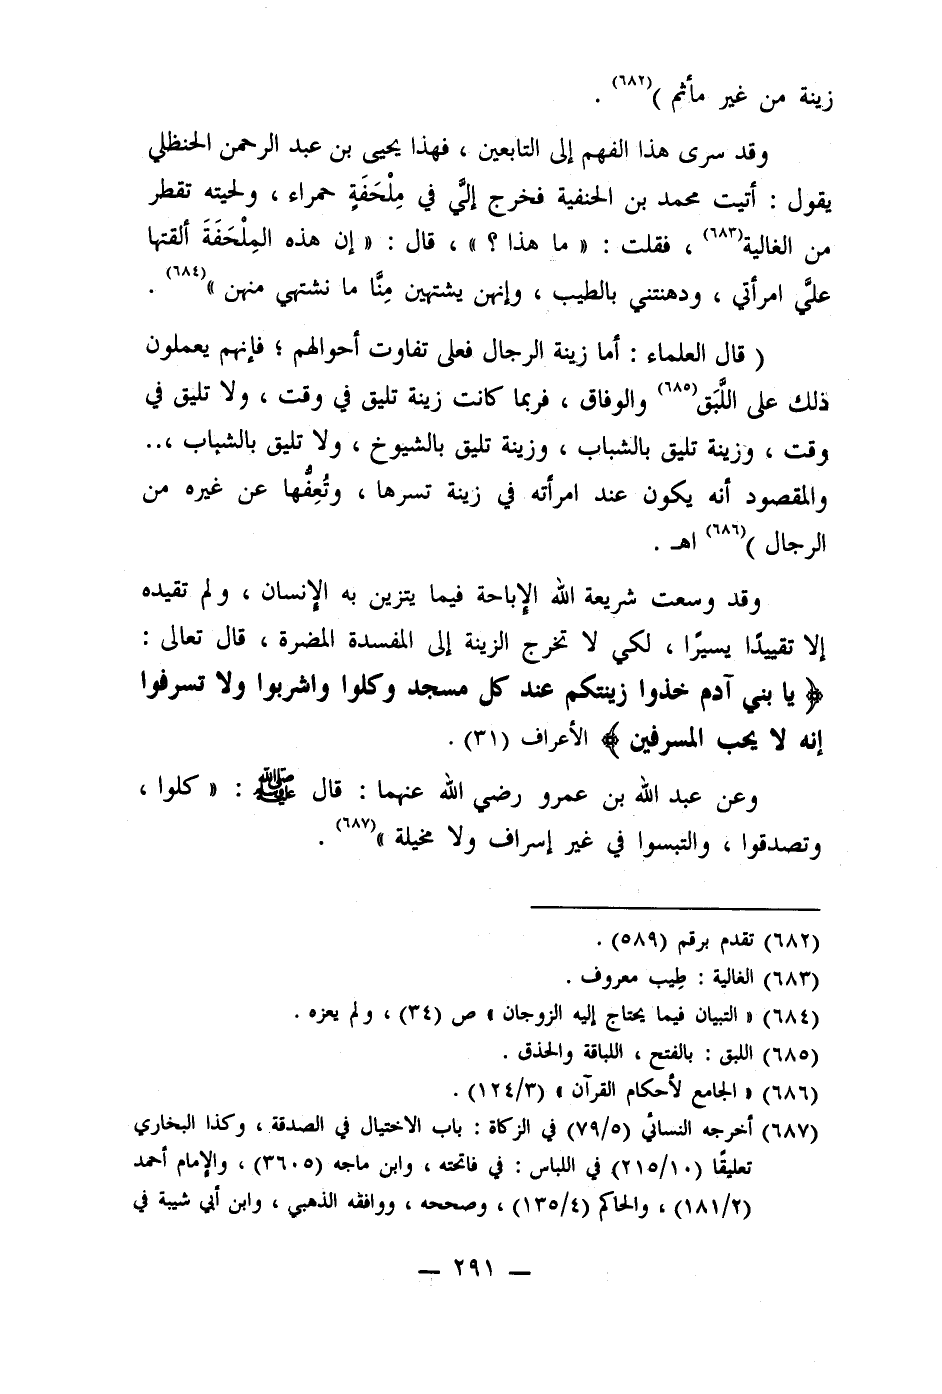 زينة من غير مأثم )(٦٨٢) .
وقد سرى هذا الفهم إلى التابعين ، فهذا يحيى بن عبد الرحمن الحنظلي
يقول : أتيت محمد بن الحنفية فخرج إليَّ في مِلْحَفَةٍ حمراء ، ولحيته تقطر
من الغالية(٦٨٣) ، فقلت : « ما هذا ؟ » ، قال : « إن هذه المِلْحَفَةَ ألقتها
عليَّ امرأتي ، ودهنتني بالطيب ، وإنهن يشتهين مِنَّا ما نشتهي منهن »(٦٨٤) .
( قال العلماء : أما زينة الرجال فعلى تفاوت أحوالهم ؛ فإنهم يعملون
ذلك على اللَّبَق(٦٨٥) والوفاق ، فربما كانت زينة تليق في وقت ، ولا تليق في
وقت ، وزينة تليق بالشباب ، وزينة تليق بالشيوخ ، ولا تليق بالشباب ،..
والمقصود أنه يكون عند امرأته في زينة تسرها ، وتُعِفُّها عن غيره من
الرجال )(٦٨٦) اهـ .
وقد وسعت شريعة الله الإباحة فيما يتزين به الإنسان ، ولم تقيده
إلا تقييدًا يسيرًا ، لكي لا تخرج الزينة إلى المفسدة المضرة ، قال تعالى :
﴿ يا بني آدم خذوا زينتكم عند كل مسجد وكلوا واشربوا ولا تسرفوا
إنه لا يحب المسرفين ﴾ الأعراف (٣١) .
وعن عبد الله بن عمرو رضي الله عنهما : قال ﷺ : « كلوا ،
وتصدقوا ، والتبسوا في غير إسراف ولا مخيلة »(٦٨٧) .
(٦٨٢) تقدم برقم (٥٨٩) .
(٦٨٣) الغالية : طِيب معروف .
(٦٨٤) « التبيان فيما يحتاج إليه الزوجان » ص (٣٤) ، ولم يعزه .
(٦٨٥) اللبق : بالفتح ، اللباقة والحذق .
(٦٨٦) « الجامع لأحكام القرآن » (١٢٤/٣) .
(٦٨٧) أخرجه النسائي (٧٩/٥) في الزكاة : باب الاختيال في الصدقة ، وكذا البخاري
تعليقًا (٢١٥/١٠) في اللباس : في فاتحته ، وابن ماجه (٣٦٠٥) ، والإمام أحمد
(١٨١/٢) ، والحاكم (١٣٥/٤) ، وصححه ، ووافقه الذهبي ، وابن أبي شيبة في
— ٢٩١ —